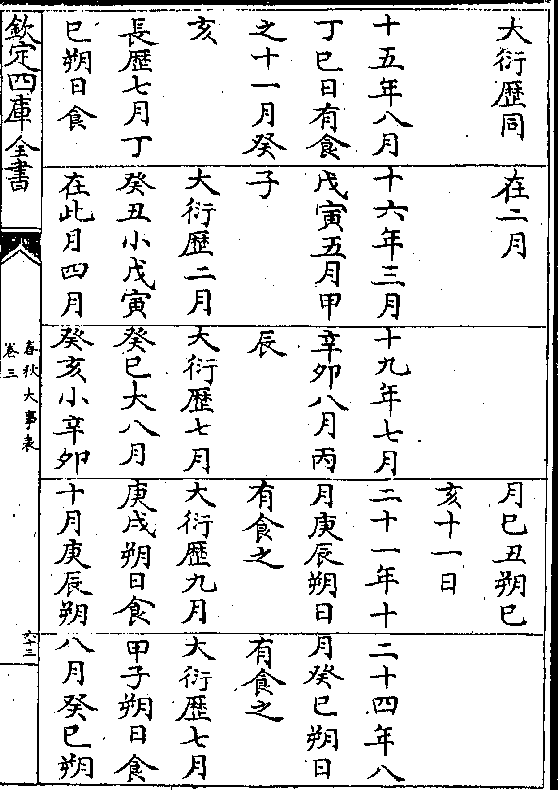 大衍歷同
十五年八月
丁巳日有食
之十一月癸
亥
長歷七月丁
巳朔日食
在二月
十六年三月
戊寅五月甲
子
大衍歷二月
癸丑小戊寅
在此月四月
十九年七月
辛卯八月丙
辰
大衍歷七月
癸巳大八月
癸亥小辛卯
月巳丑朔巳
亥十一日
二十一年十
月庚辰朔日
有食之
大衍歷九月
庚戌朔日食
十月庚辰朔
二十四年八
月癸巳朔日
有食之
大衍歷七月
甲子朔日食
八月癸巳朔
欽定四庫全書
春秋大事表
卷三